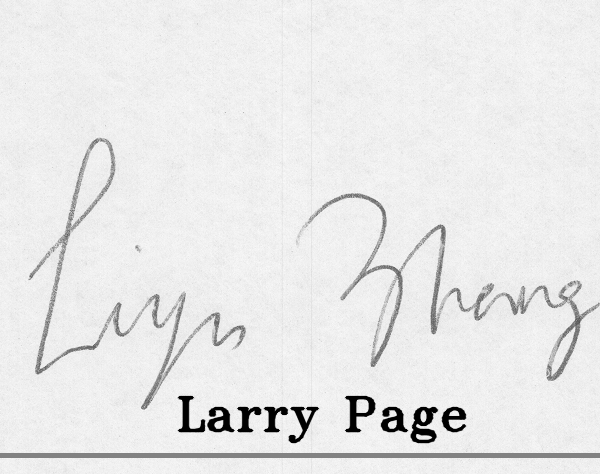 Liyu Zhang
Larry Page